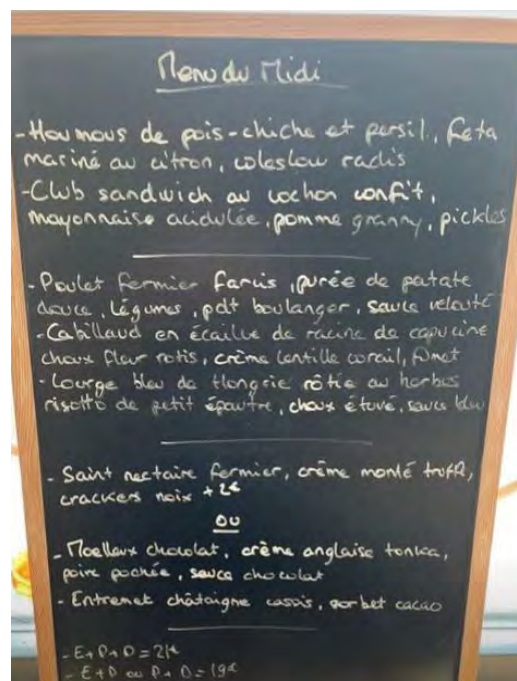 Menu du Midi
- Houmous de pois-chiche et persil, feta
mariné au citron, coleslaw radis
- Club sandwich au cochon confit,
mayonnaise acidulée, pomme granny, pickles
- Poulet fermier farcis, purée de patate
douce, légumes, pdt boulanger, sauce velouté
- Cabillaud en écaille de racine de capucine
choux fleur rotis, crème lentille corail, fumet
- Courge bleu de Hongrie rôtie au herbes
risotto de petit épautre, choux étuvé, sauce bleu
- Saint nectaire fermier, crème monté truffe,
crackers noix +2€
OU
- Moelleux chocolat, crème anglaise tonka,
poire pochée, sauce chocolat
- Entremet châtaigne cassis, sorbet cacao
- E+P+D = 21€
- E+P ou P+D = 19€